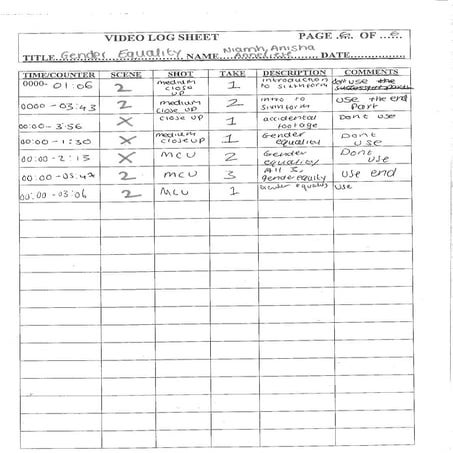 VIDEO LOG SHEET PAGE .6. OF ...6...
TITLE Gender Equality NAME Niamh, Anisha DATE
TIME/COUNTER SCENE SHOT TAKE DESCRIPTION COMMENTS
0000- 01:06 2 medium close up 1 introduction to sixthform use the
0000 - 03:43 2 medium close up 2 intro to sixthform use the end Part
00:00- 3:56 X close up 1 accidental footage Dont use
00:00 - 1:30 X medium closeup 1 Gender equality Dont use
00:00 - 2:15 X MCU 2 Gender equality Dont use
00:00 - 05:47 2 MCU 3 All 3, gender equity use end
00:00 - 03:06 2 MCU 1 Gender equality use